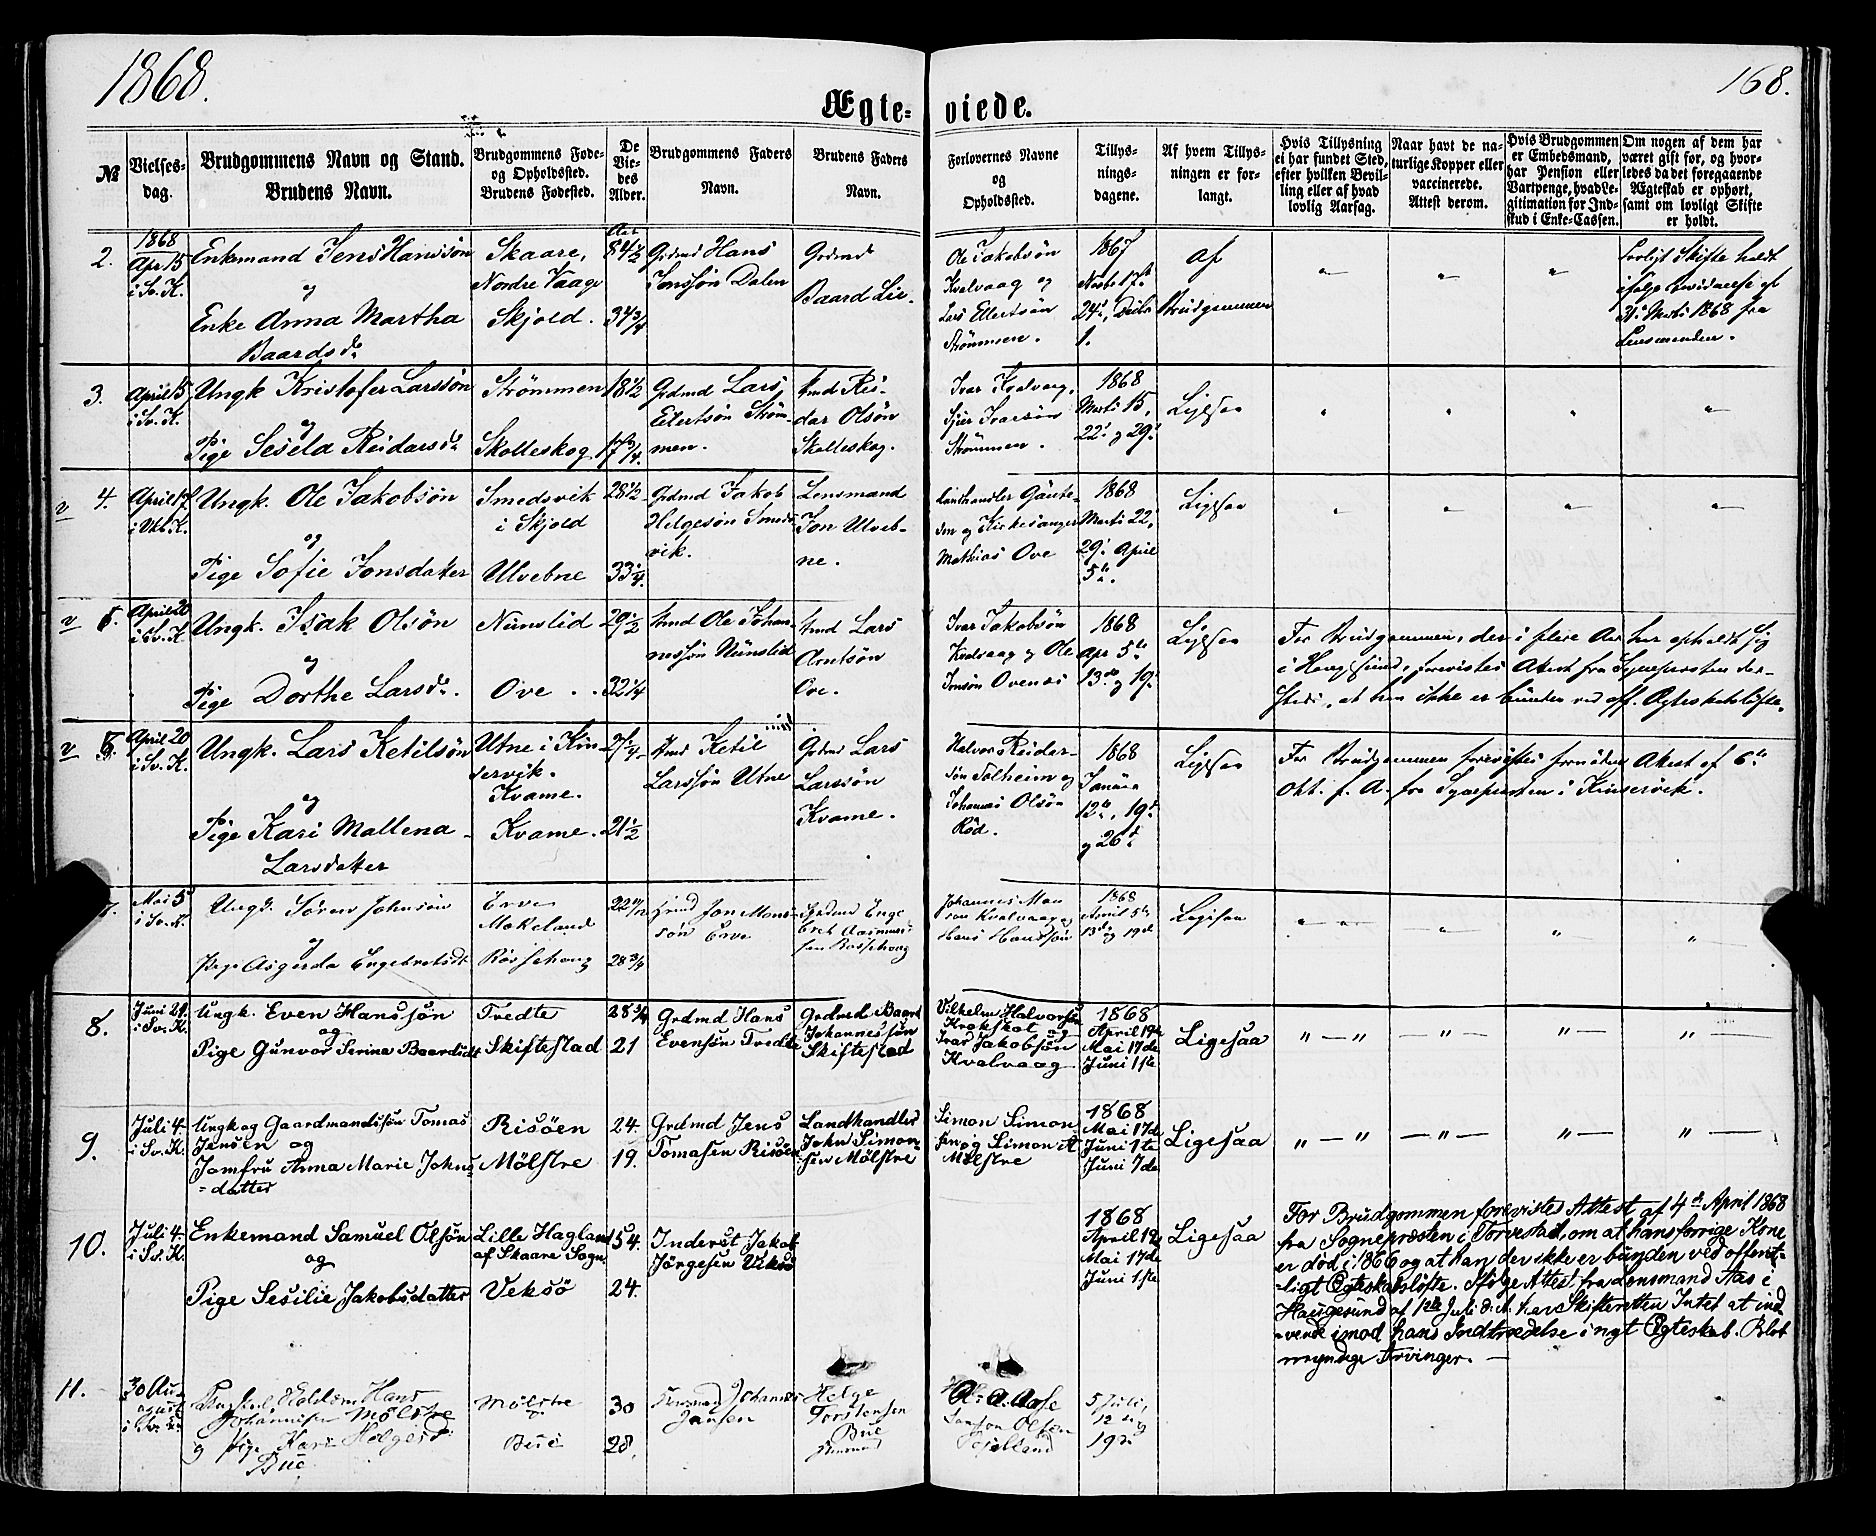 1868.
168.
Ægte-
viede.
№
Vielses-
dag.
Brudgommens Navn og Stand.
Brudens Navn.
Brudgommens Føde-
og Opholdssted.
Brudens Fødested.
De
Vie-
des
Alder.
Brudgommens Faders
Navn.
Brudens Faders
Navn.
Forlovernes Navne
og
Opholdssted.
Tillys-
nings-
dagene.
Af hvem Tillys-
ningen er for-
langt.
Hvis Tillysning
ei har fundet Sted,
efter hvilken Bevil-
ling eller af hvad
lovlig Aarsag.
Naar havt de na-
turlige Kopper eller
vaccinerede.
Attest derom.
Hvis Brudgommen
er Embedsmand,
har Pension eller
Vartpenge, hvad Le-
gitimation for Ind-
skud i Enke-Cassen.
Om nogen af dem har
været gift før, og hvor-
ledes da det foregaaende
Ægteskab er ophørt,
samt om lovligt Skifte
er holdt.
2.
1868
Apr. 15
i Sv. K.
Enkemand Jens Hanssøn
og
Enke Anna Martha
Baardsdr
Skaare,
Nordre Vaage
Skjold.
Aar
84 1/2
34 3/4
Grdmd Hans
Jonssøn Dalen
Grdmd
Baard Lie.
Ole Jakobsøn
Kvalvaag og
Lars Ellertsøn
Strømmen.
1867
17de
24de, Decbr
1.
Af
Brudgommen
Lovligt Skifte holdt
ifølge
31te Marts 1868 fra
Lensmanden.
3.
April 15
i Sv. K.
Ungk Kristofer Larssøn
og
Pige Sesela Reidarsdr
Strømmen
Skolleskog
18 1/2
17 3/4
Grdmd Lars
Elertsøn Strøm-
men.
Hmd Rei-
dar Olsøn
Skolleskog.
Ivar Kvalvaag,
Sjur Ivarsøn
Strømmen.
1868
Marts 15,
22de og 29de
Ligesaa
v 4.
April 17
i Utb. K.
Ungk. Ole Jakobsøn
og
Pige Sofie Jonsdatter
Smedsvik
i Skjold
Ulvebne
28 1/2
33 1/4
Grdmd Jakob
Helgesøn Smeds-
vik.
Lensmand
Jon Ulveb-
ne.
Landhandler Gaute-
sen og Kirkesanger
Mathias Ove
1868
Marts 22,
29de April
5te.
Ligesaa
v 5.
April 20
i Sv. K.
Ungk. Isak Olsøn
og
Pige Dorthe Larsdr.
Nünslid
Ove.
29 1/2
32 1/4
Hmd Ole Johan-
nessøn Nünslid
Hmd Lars
Arntsøn
Ove.
Ivar Jakobsøn
Kvalvaag og Ole
Jonsøn Ovenæs
1868
Apr 5te
13de og 19de
Ligesaa
For Brudgommen, der i flere Aar har opholdt sig
i Haugesund, forevistes Attest fra Sognepresten der-
steds, at han ikke er bunden ved off. Ægteskabsløfte.
v 6.
April 20
i Sv. K.
Ungk. Lars Ketilsøn
og
Pige Kari Mallena
Larsdatter
Utne i Kin-
servik.
Kvame.
Kvame.
27 1/4
21 1/2
Hmd Ketil
Larssøn Utne
Grdmd Lars
Larssøn
Kvame.
Halvor Reidar-
søn Solheim og
Johannes Olsøn
Rød.
1868
Januar
12te, 19de
og 26de
Ligesaa
For Brudgommen forevistes fornøden Attest af 6te
Okt. f. A. fra Sognepresten i Kinservik.
7.
Mai 5
i Sv. K.
Ungk. Søren Johnsøn
og
Pige Asgerda Engebretsdr
Erve
Mokeland
Røssehoug
22
28 3/4
Grdmd Jon Mons-
søn Erve
Grdmd Enge-
bret Rasmus-
sen Røssehoug
Johannes Mon-
sen Kvalvaag og
Hans Hanssøn
1868
April 5te
13de og 19de
Ligesaa
8.
Juni 21.
i Sv. K.
Ungk. Even Hanssøn
og
Pige Gunvor Serina Baardsdt
Tredte
Skiftestad
28 3/4
21
Grdmd Hans
Evensøn Tredte
Grdmd Baard
Johannessøn
Skiftestad
Vilhelm Halvorsen
Krokskot og
Ivar Jakobsøn
Kvalvaag
1868
April 19de
Mai 17de
Juni 1ste
Ligesaa
9.
Juli 4.
i Sv. K.
Ungk og Gaardmandssøn Tomas
Jensen og
Jomfru Anna Marie Johns-
-datter
Risøen
Mølstre
24.
19.
Grdmd Jens
Tomasen Risøen
Landhandler
John Simon-
sen Mølstre
Simon Simon
sen og Simon A
Mølstre
1868
Mai 17de
Juni 1te
Juni 7de
Ligesaa
10.
Juli 4.
i Sv. K.
Enkemand Samuel Olsøn
og
Pige Sesilie Jakobsdatter
Lille Hagland
af Skaare Sogn
Veksø
54.
24.
Inderst Jakob
Jørgesen Veksø
1868
April 19de
Mai 17de
Juni 1ste
Ligesaa
For Brudgommen forevistes Attest af 4de April 1868
fra Sognepræsten i Torvestad, om at hans forrige Kone
er død i 1866 og at han der ikke er bunden ved offent-
-ligt Ægteskabsløfte. Ifølge Attest fra Lensmand Aas i
Haugesund af 1ste Juli d. A. har Skifteretten Intet at ind-
-vende imod hans Indtrædelse i nyt Ægteskab. Blot
myndige Arvinger. —
11.
30 Au-
gust
i Sv. K.
Hans
Johannesen Mølstre
og Pige Kari Helgesd.
Bue
Mølstre
Bue
30
28.
Johannes
Jansen
Helge
Torstensen
Bue
A. Aase
Olsen
5 Juli,
12 og
19de